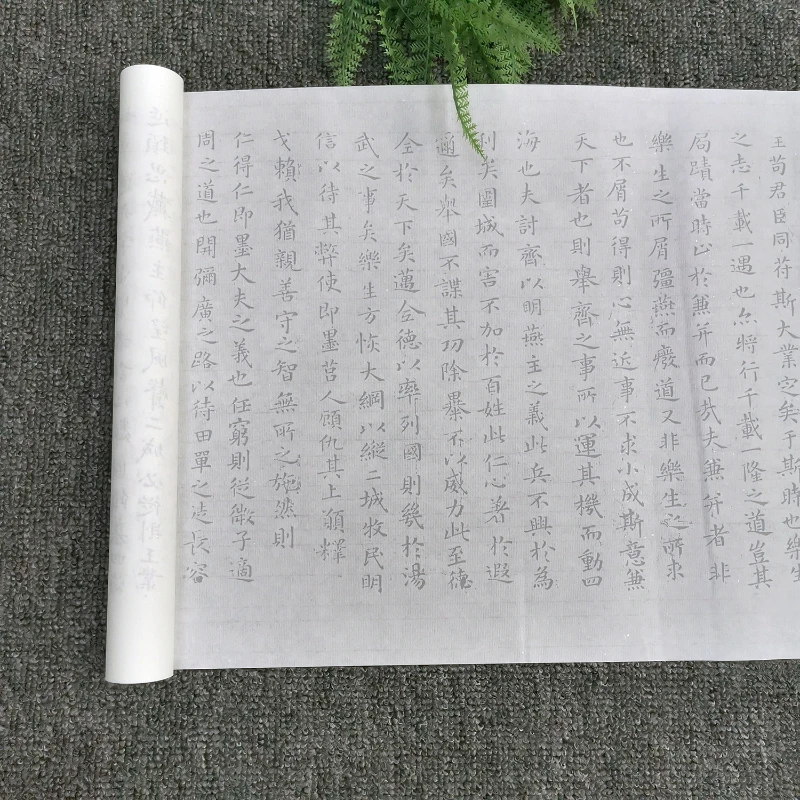 王苟君臣同符斯大業定矣于斯時也樂生
之志千載一遇也亦將行千載一隆之道豈其
局蹟當時止於兼并而已哉夫兼并者非
樂生之所屑彊燕而廢道又非樂生之所求
也不屑苟得則心無近事不求小成斯意兼
天下者也則舉齊之事所以運其機而動四
海也夫討齊以明燕主之義此兵不興於為
利矣圍城而害不加於百姓此仁心著於遐
邇矣舉國不謀其功除暴不以威力此至德
全於天下矣邁全德以率列國則幾於湯
武之事矣樂生方恢大綱以縱二城牧民明
信以待其弊使即墨莒人顧仇其上願釋
戈賴我猶親善守之智無所之施然則
仁得仁即墨大夫之義也任窮則從微子適
周之道也開彌廣之路以待田單之徒長容